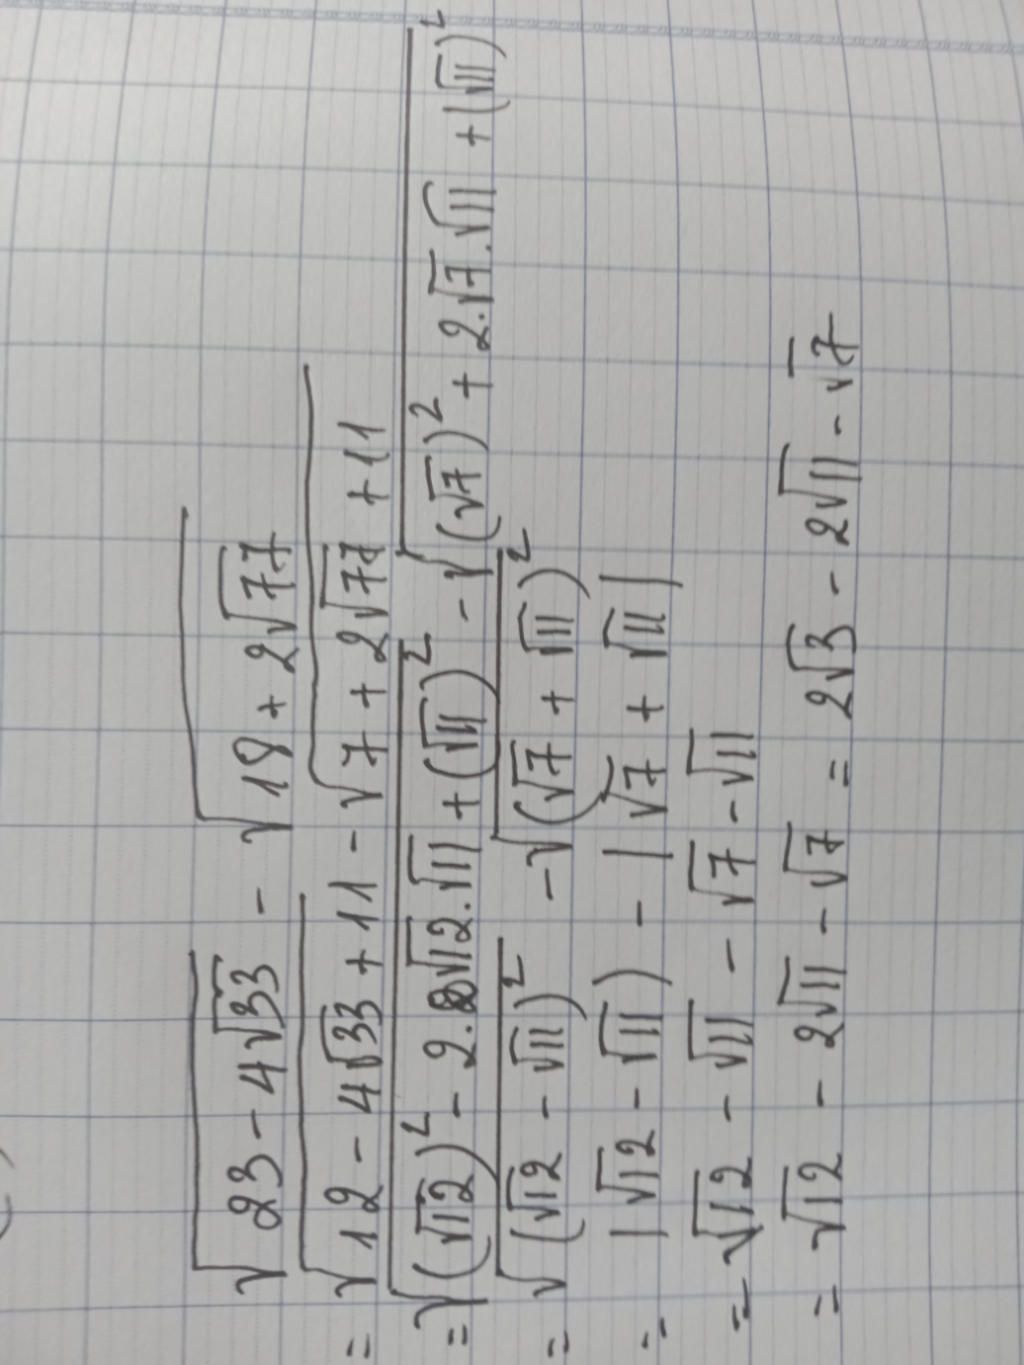 √(23 - 4√33) - √(18 + 2√77)
= √(12 - 4√33 + 11) - √(7 + 2√77 + 11)
= √((√12)² - 2.√12.√11 + (√11)²) - √((√7)² + 2.√7.√11 + (√11)²)
= √(√12 - √11)² - √(√7 + √11)²
= |√12 - √11| - |√7 + √11|
= √12 - √11 - √7 - √11
= √12 - 2√11 - √7 = 2√3 - 2√11 - √7